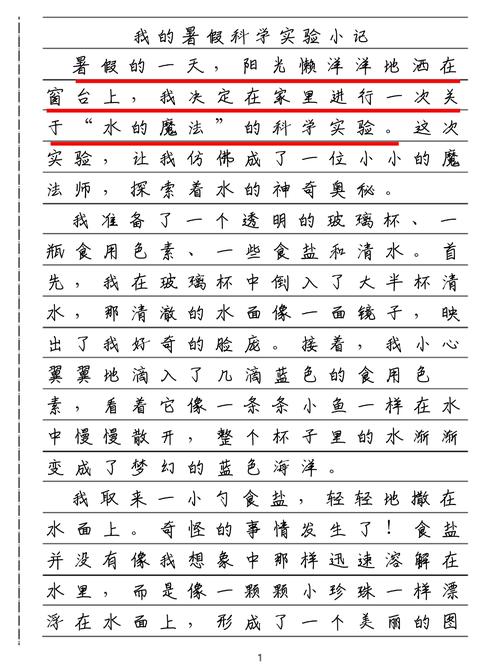 我的暑假科学实验小记
暑假的一天，阳光懒洋洋地洒在
窗台上，我决定在家里进行一次关
于“水的魔法”的科学实验。这次
实验，让我仿佛成了一位小小的魔
法师，探索着水的神奇奥秘。
我准备了一个透明的玻璃杯、一
瓶食用色素、一些食盐和清水。首
先，我在玻璃杯中倒入了大半杯清
水，那清澈的水面像一面镜子，映
出了我好奇的脸庞。接着，我小心
翼翼地滴入了几滴蓝色的食用色
素，看着它像一条条小鱼一样在水
中慢慢散开，整个杯子里的水渐渐
变成了梦幻的蓝色海洋。
我取来一小勺食盐，轻轻地撒在
水面上。奇怪的事情发生了！食盐
并没有像我想象中那样迅速溶解在
水里，而是像一颗颗小珍珠一样漂
浮在水面上，形成了一个美丽的图
1